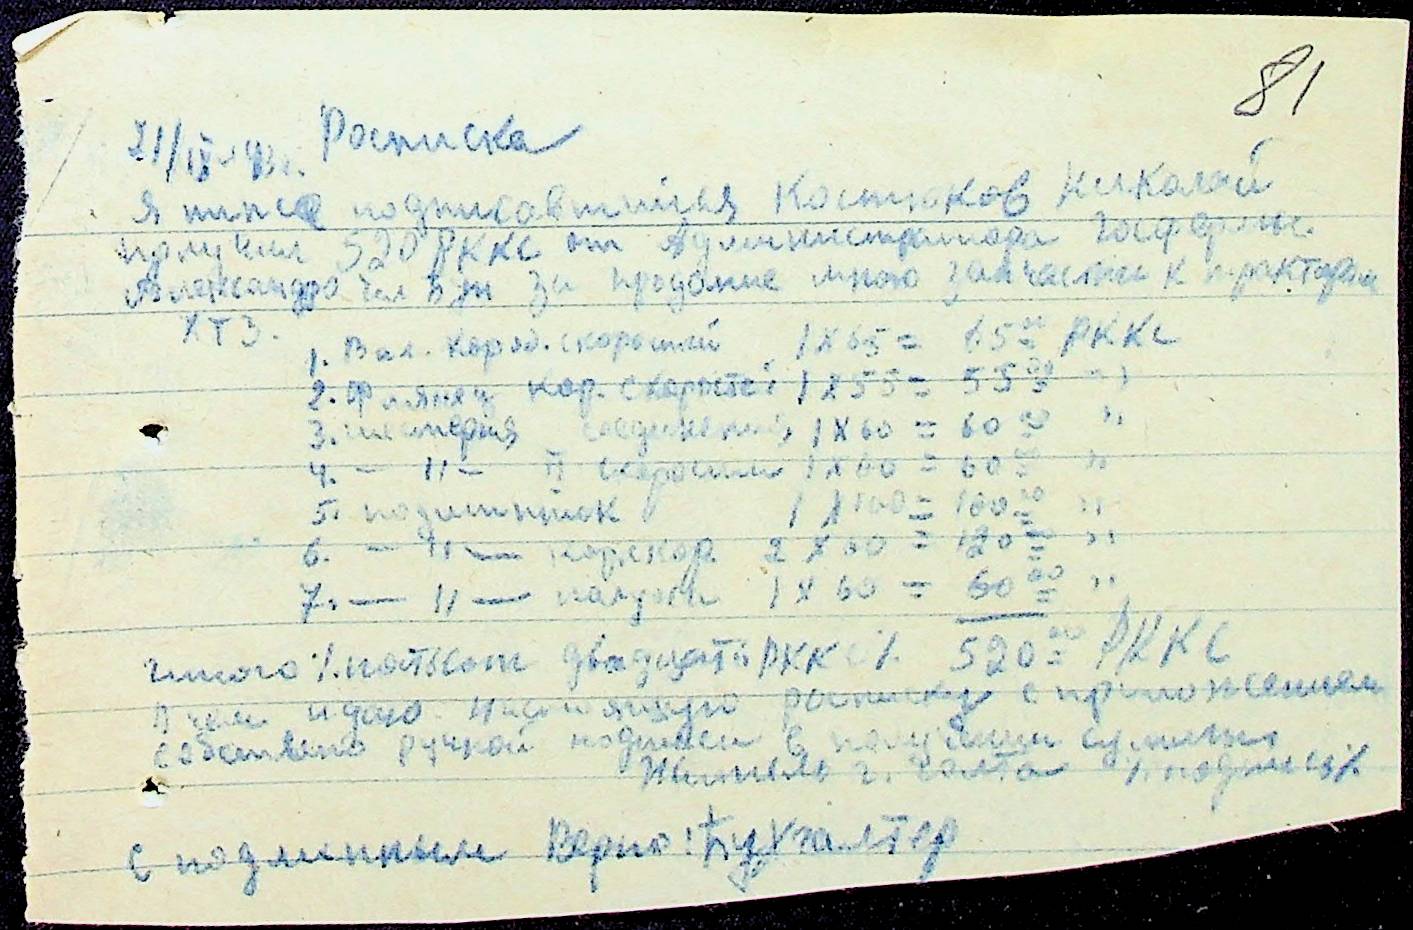 81
Росписка
21/IV-43г.
Я ниже подписавшийся Костюков Николай
получил 520 РККС от Администратора Госфермы
за проданые мною запчасти к тракторам
ХТЗ.
1. Вал. короб. скоростей 1 х 65 = 65 00 РККС
2. Флянец кор. скоростей 1 х 55 = 55 00 "
3. шестерня соединения 1 х 60 = 60 00 "
4. — " — II скорости 1 х 60 = 60 00 "
5. подшипник 1 х 100 = 100 00 "
6. — " — кор. скор. 2 х 60 = 120 00 "
7. — " — 1 х 60 = 60 00 "
Итого /. пятьсот двадцать РККС /. 520 00 РККС
В чем и даю настоящую росписку с приложением
собствено ручной подписи в получении суммы
Житель г. /. подпись /.
С подлинным Верно: Бухгалтер